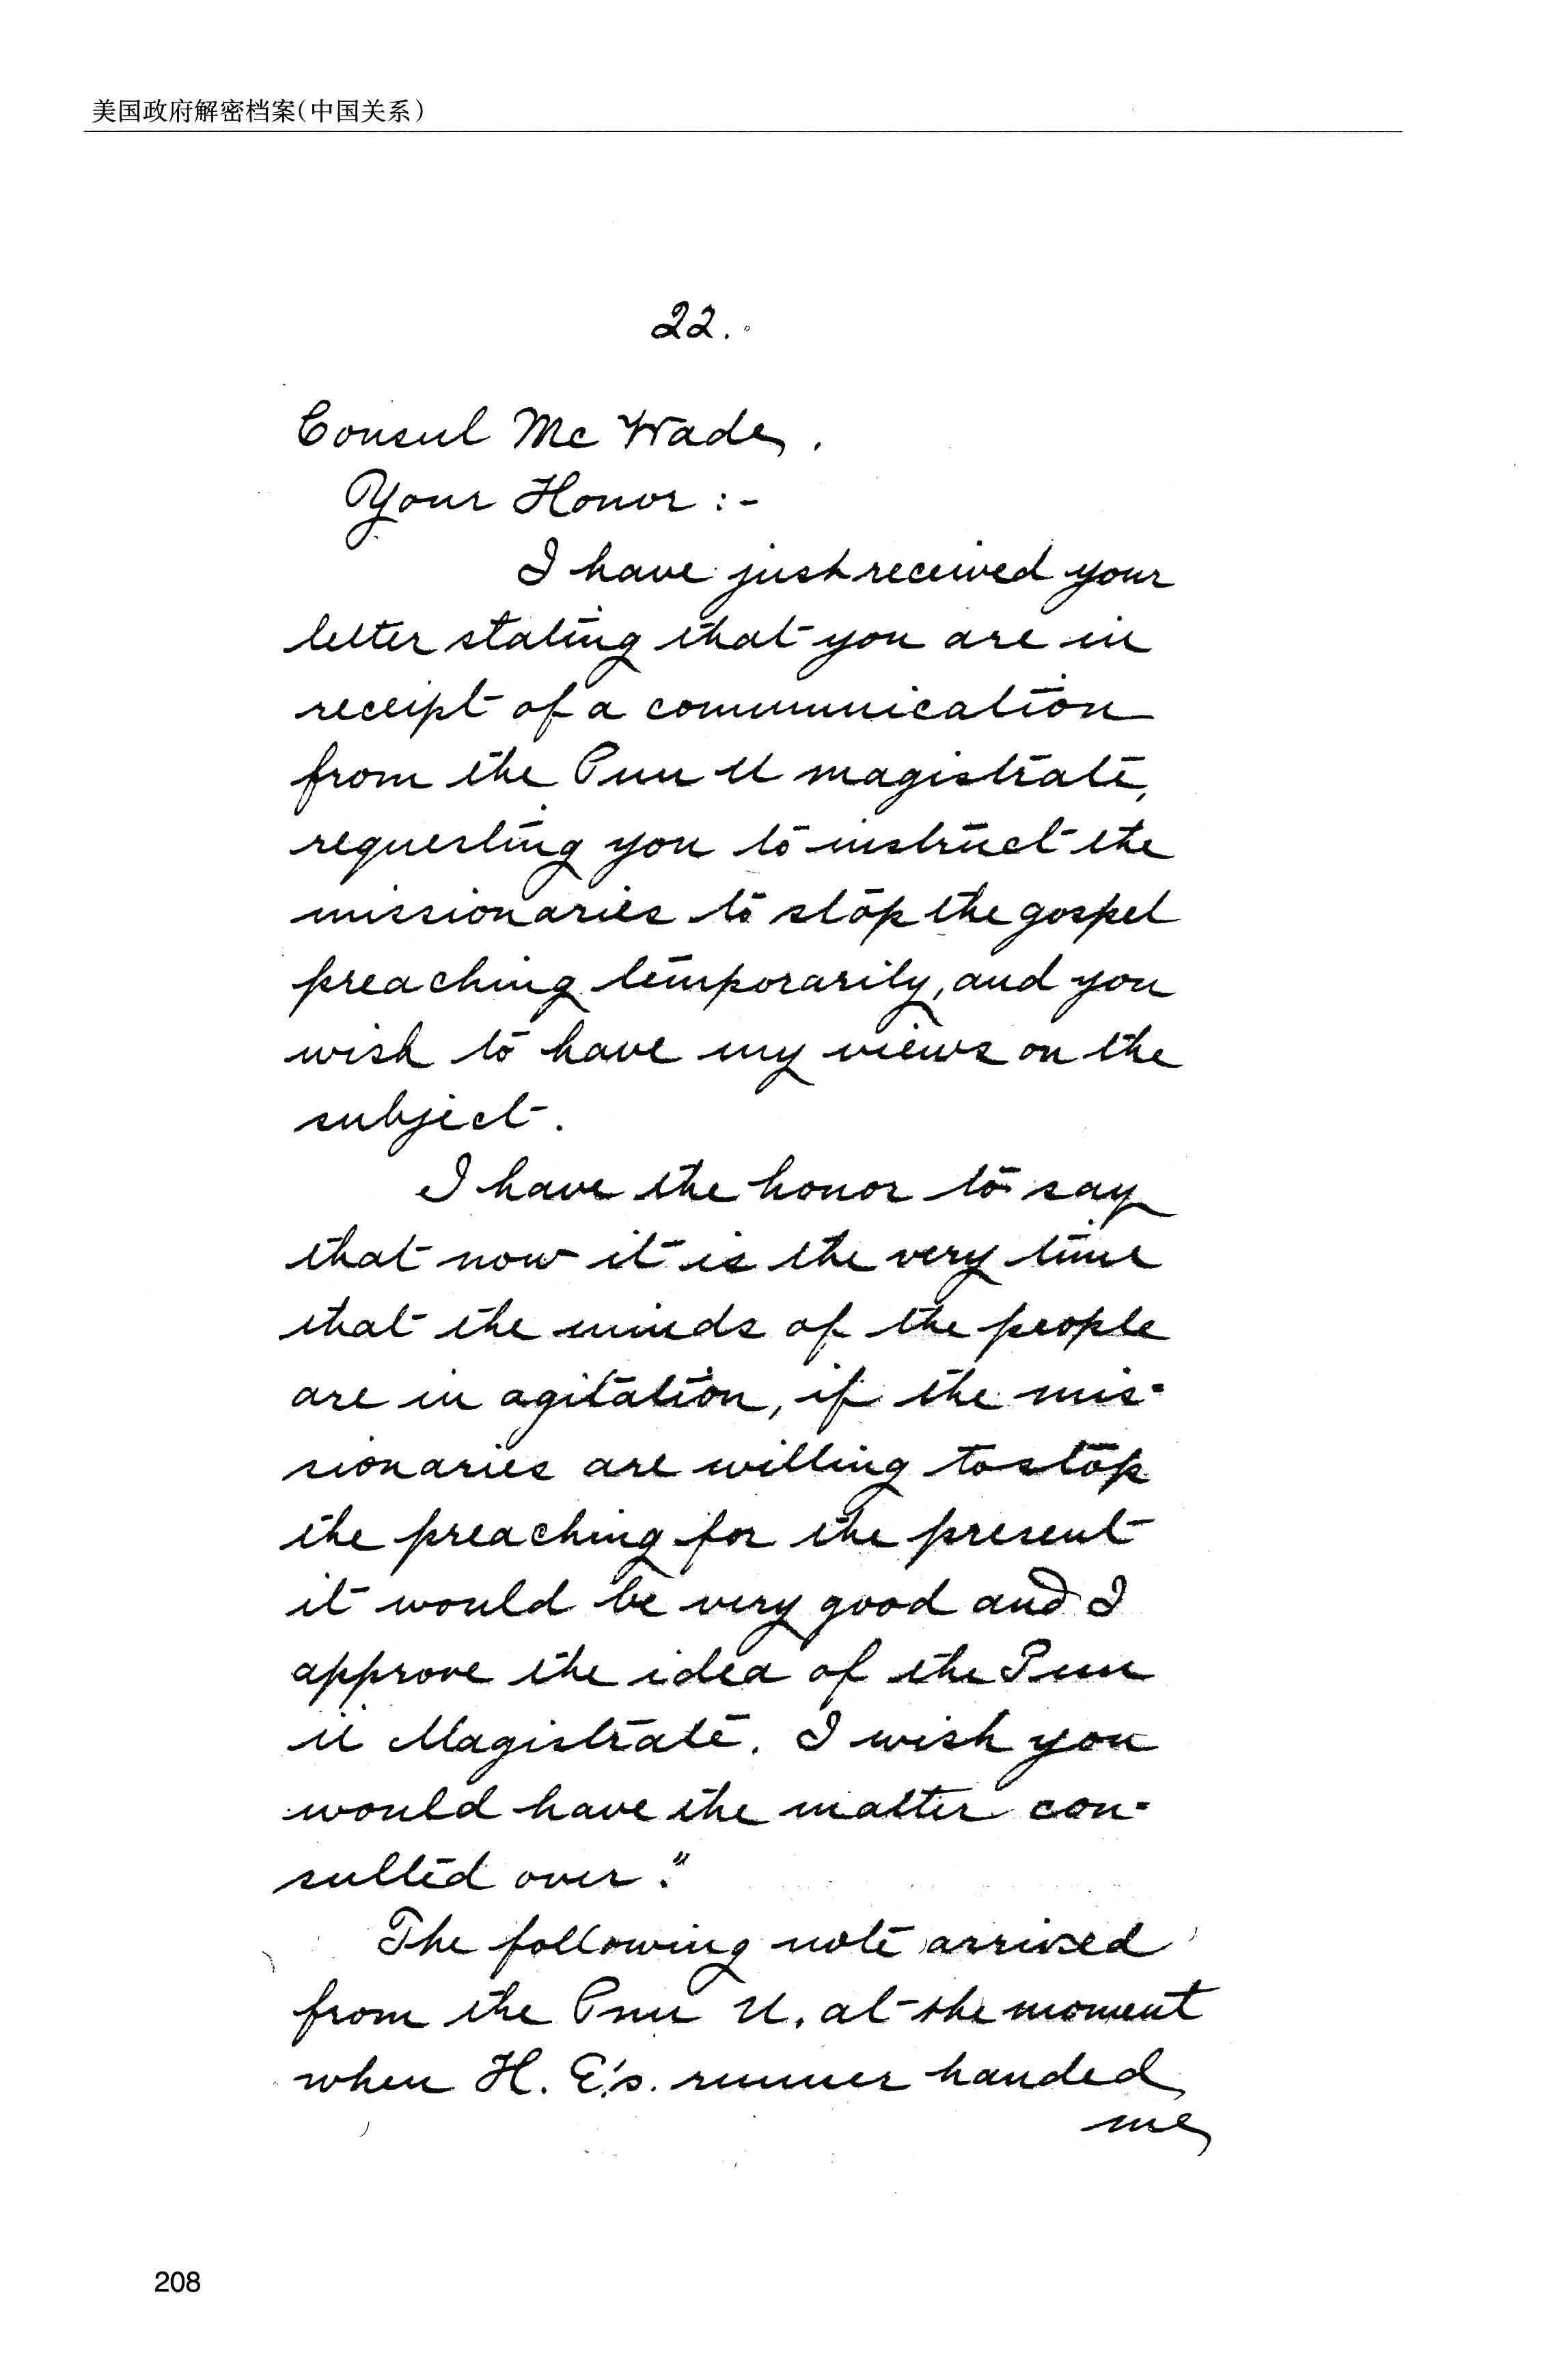 美国政府解密档案(中国关系)
22.
Consul Mc Wade,
Your Honor :-
I have just received your
letter stating that you are in
receipt of a communication
from the Pun U magistrate,
requesting you to instruct the
missionaries to stop the gospel
preaching temporarily, and you
wish to have my views on the
subject.
I have the honor to say
that now it is the very time
that the minds of the people
are in agitation, if the mis-
sionaries are willing to stop
the preaching for the present
it would be very good and I
approve the idea of the Pun
U Magistrate. I wish you
would have the matter con-
sulted over."
The following note arrived
from the Pun U. at the moment
when H. E's. runner handed
me
208